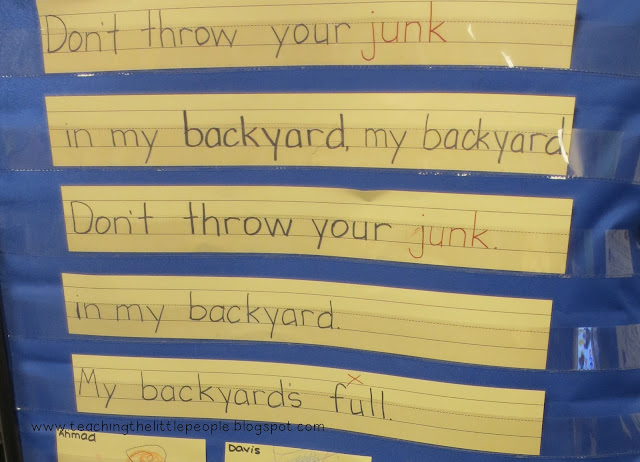 Don't throw your junk
in my backyard, my backyard
Don't throw your junk.
in my backyard.
My backyard's full.
www.teachingthelittlepeople.blogspot.com
Ahmad
Davis